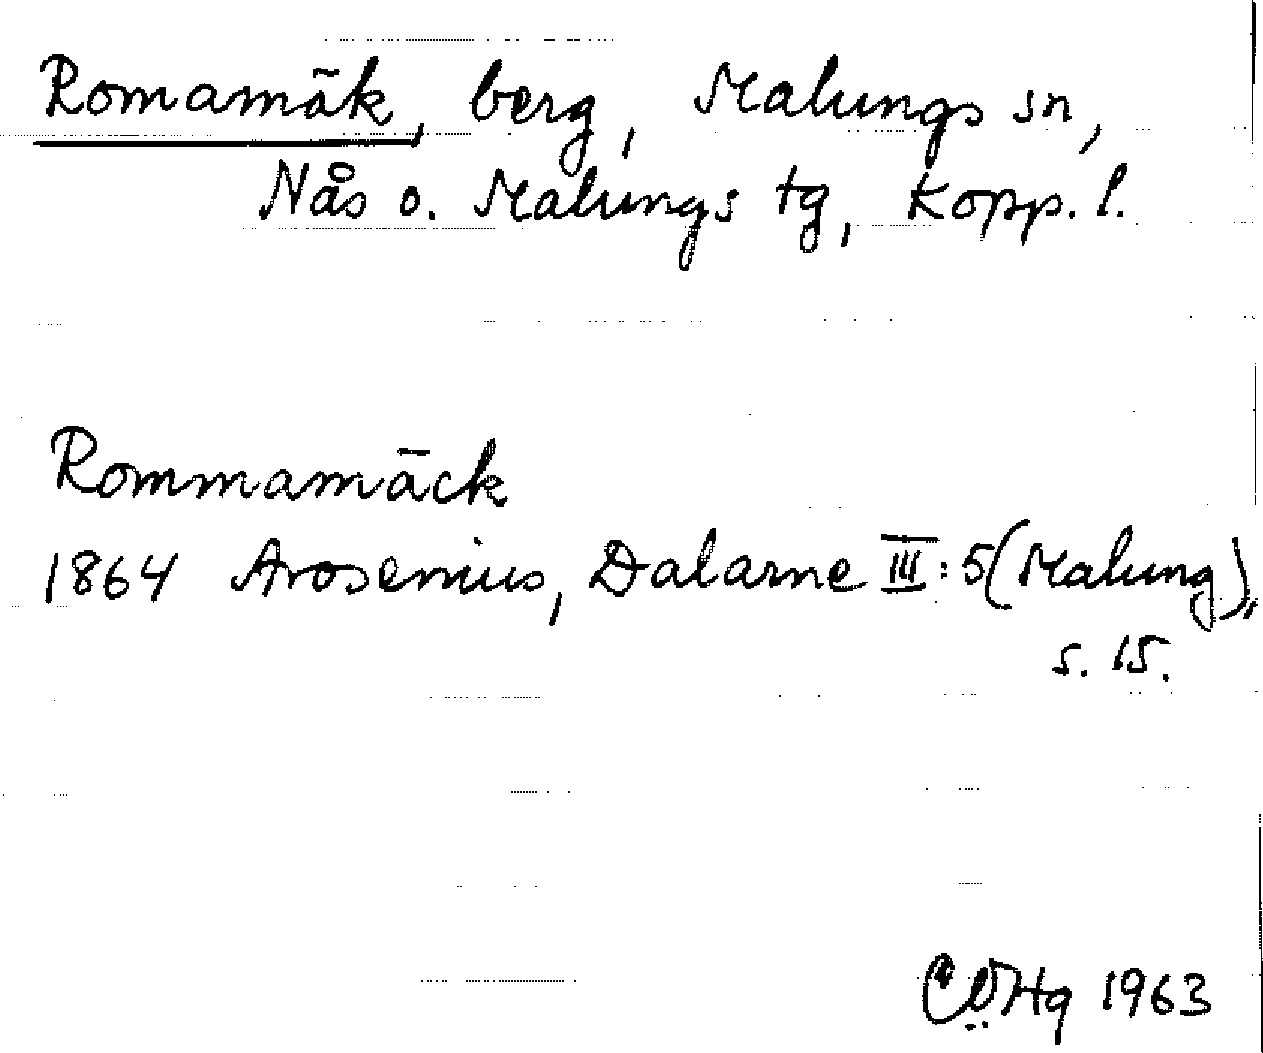 Romamäk, berg, Malungs sn,
Nås o. Malungs tg, Kopp. l.
Rommamäck
1864 Arosenius, Dalarne III:5 (Malung),
s. 15.
1963